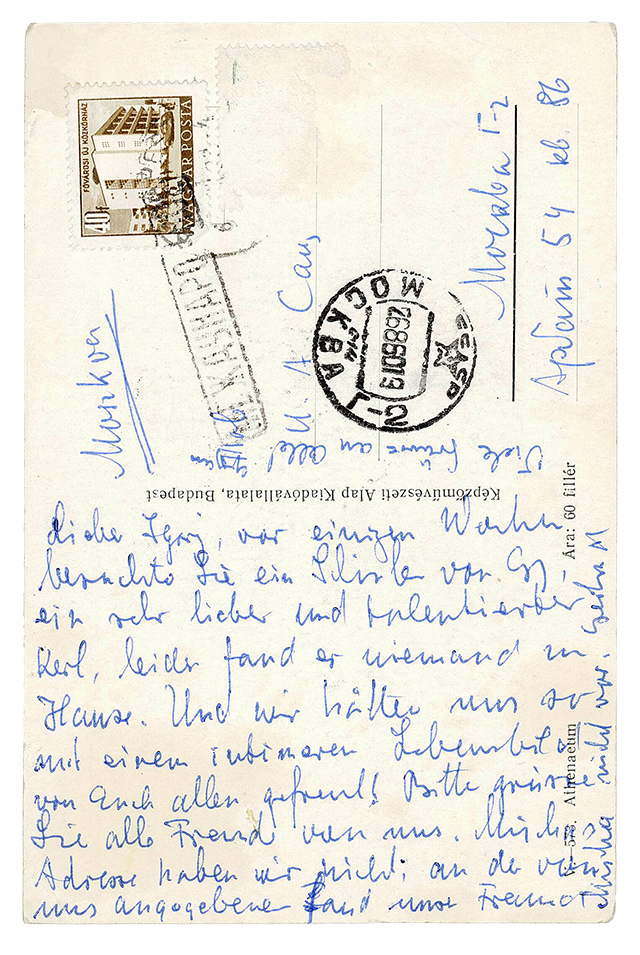 FŐVÁROSI ÚJ KÖZKÓRHÁZ
40f
MAGYAR POSTA
Moskva
МОСКВА
Г-2
Москва Г-2
Арбат 54 кв. 86
Viele an alle!
Képzőművészeti Alap Kiadóvállalata, Budapest
Ára: 60 fillér
Athenaeum
Liebe vor einigen Wochen
besuchte Sie ein Schüler von Gy-
ein sehr lieber und talentierter
Kerl, leider fand er niemand zu
Hause. Und wir hätten uns so
mit einem intimeren Lebensbild
von Euch allen gefreut! Bitte grüssen
Sie alle Freunde von uns. Mischas
Adresse haben wir nicht: an der von
uns angegebenen fand unser Freund
Mischa nicht vor.